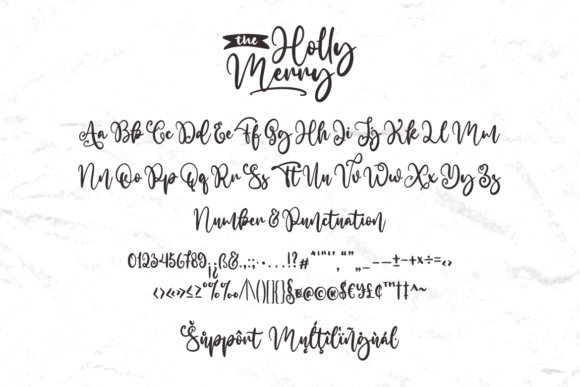 the Holly
Merry
Aa Bb Cc Dd Ee Ff Gg Hh Ii Jj Kk Ll Mm
Nn Oo Pp Qq Rr Ss Tt Uu Vv Ww Xx Yy Zz
Number & Punctuation
0123456789¡¿ß&.,:;-·...!?#*"'"',“”„_–—±-+×÷=‹›
<>«»≤≥°%‰/|\()[]{}§®@©®$€¥£¢™†‡^~
Šůppôrt Mųḷţïlïñġùál